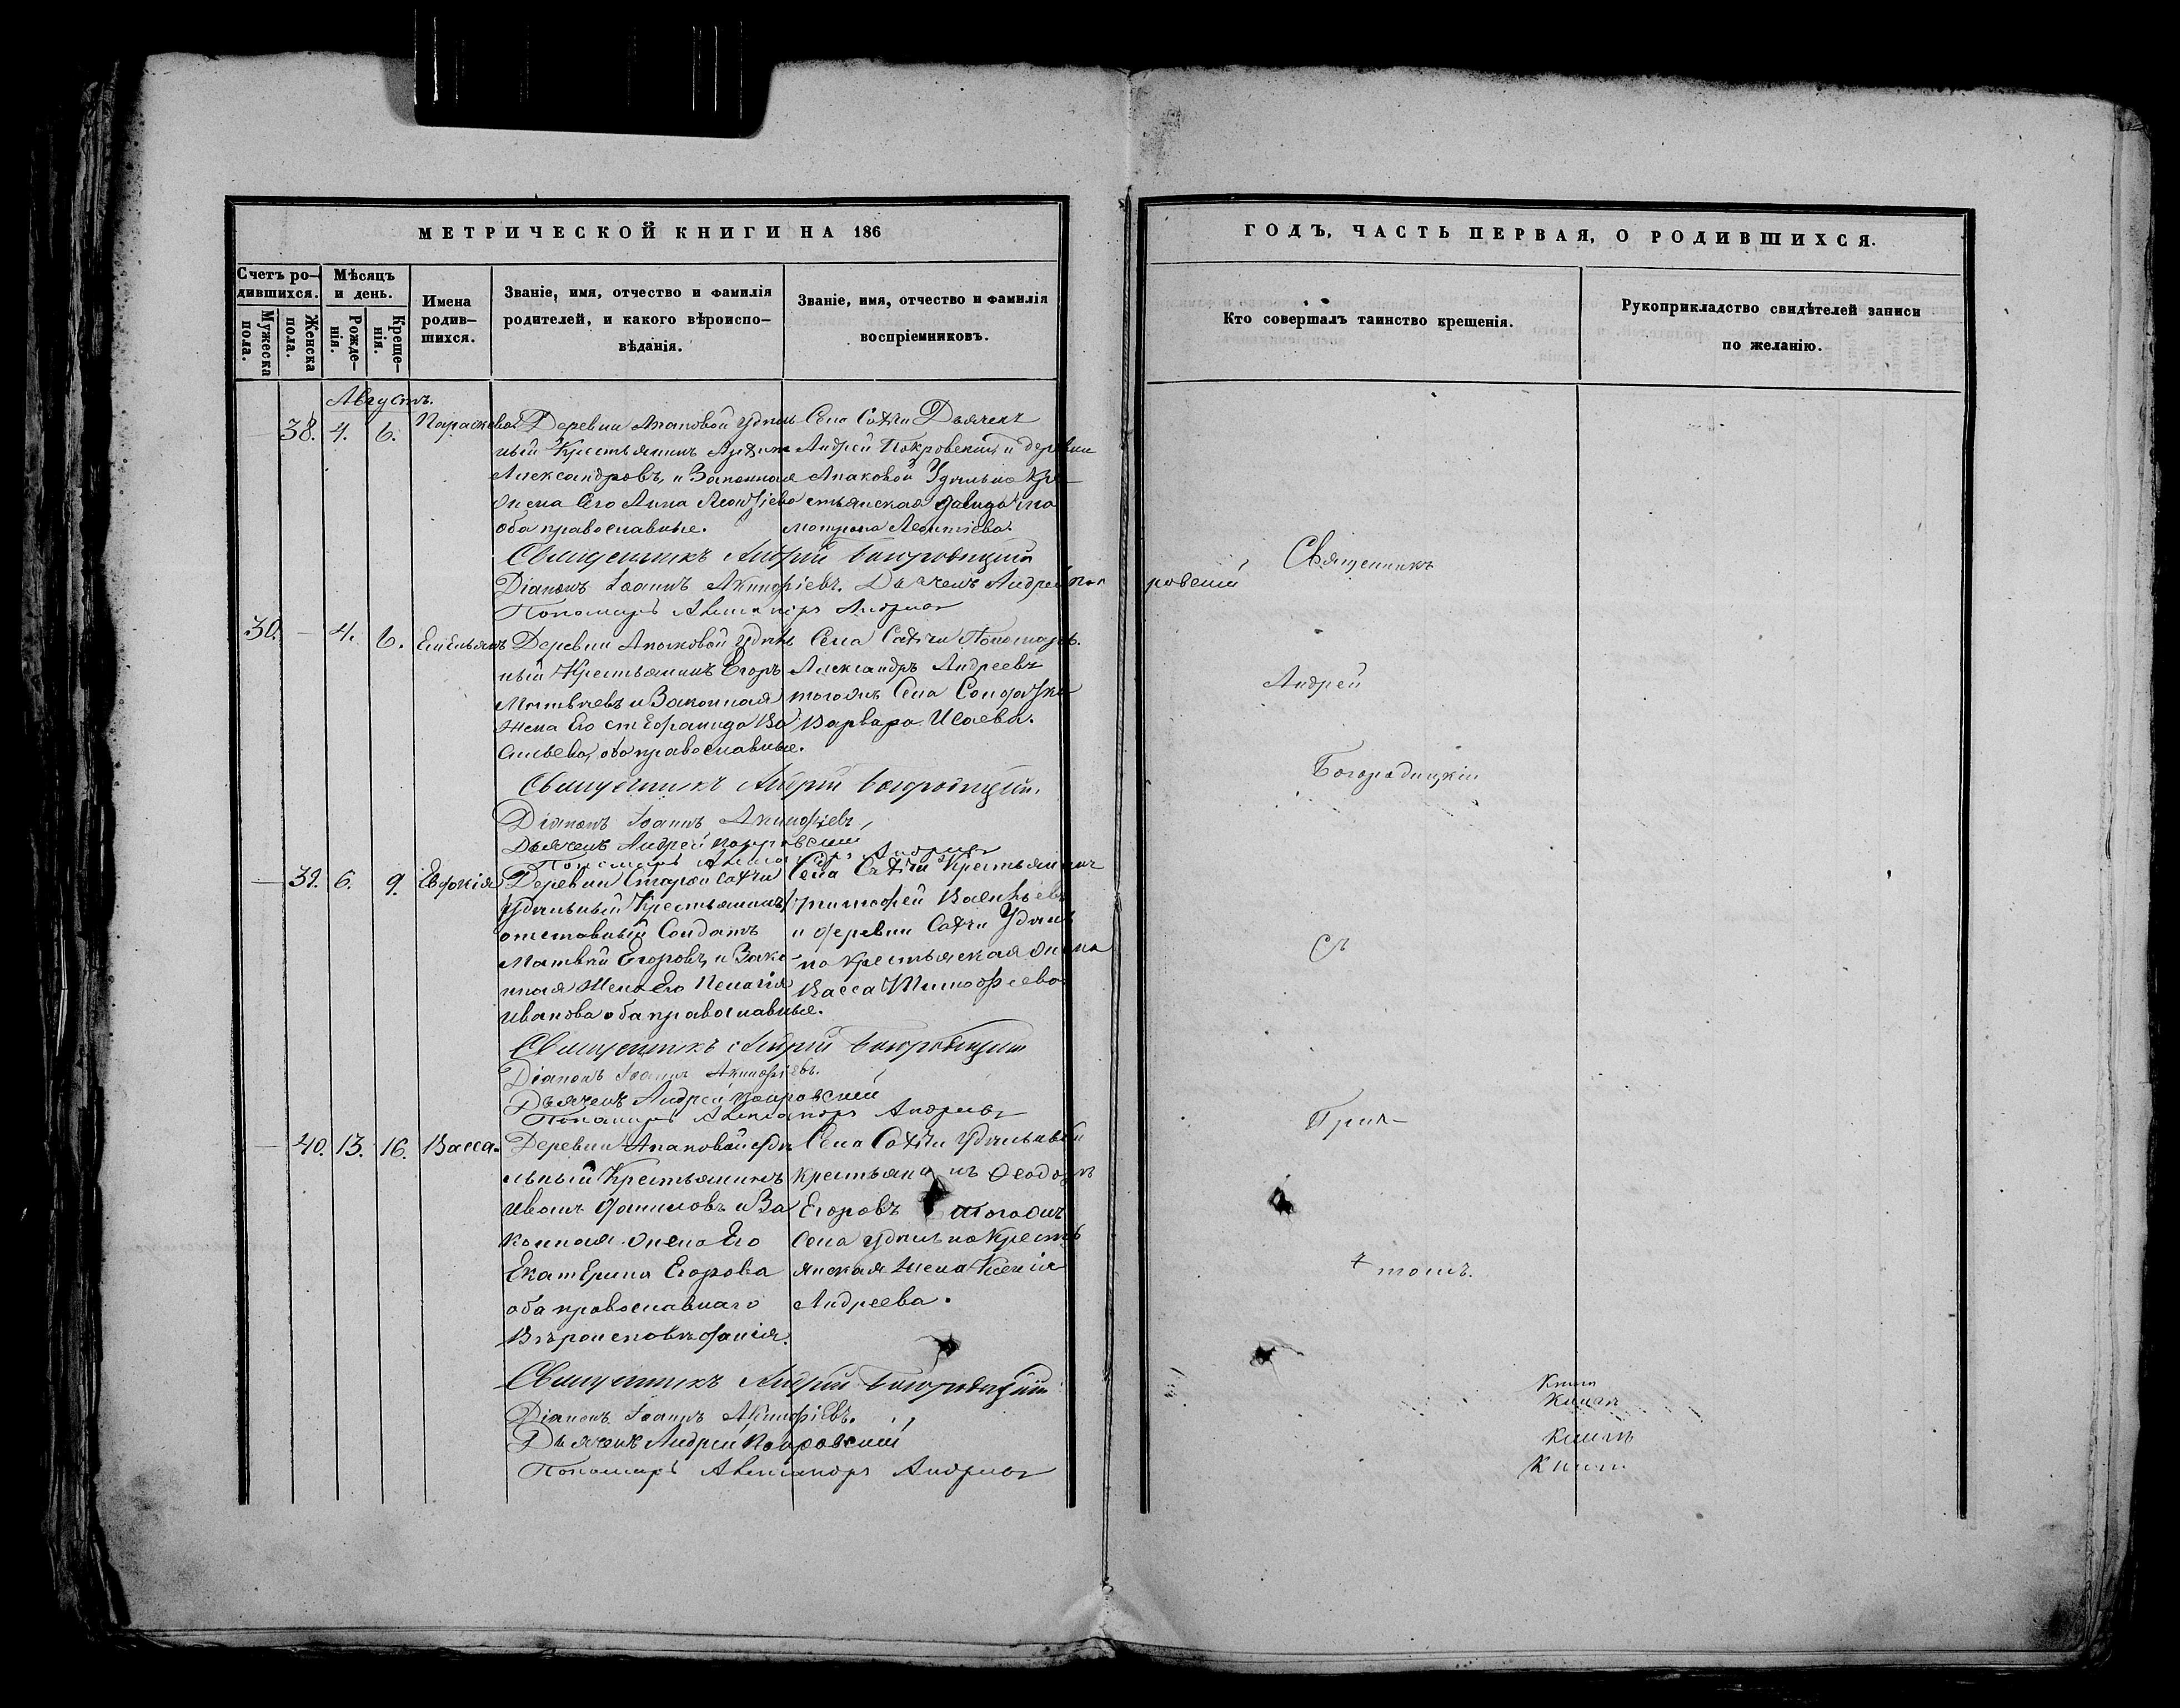 МЕТРИЧЕСКОЙ КНИГИ НА 186
Счетъ ро-
дившихся.
Мужеска
пола.
Женска
пола.
Мѣсяцъ
и день.
Рожде-
нія.
Креще-
нія.
Имена
родив-
шихся.
Званіе, имя, отчество и фамилія
родителей, и какого вѣроиспо-
вѣданія.
Званіе, имя, отчество и фамилія
воспріемниковъ.
Августъ.
38. 4. 6.
Деревни Апаковой Удѣль
ный Крестьянинъ
Александровъ, и Законная
жена Его Анна Леонтіева
оба православные.
Села Сатѣи Дьячекъ
Андрей Покровскій и деревни
Апаковой Удѣльно Кре-
стьянская
Леонтіева.
Священникъ Андрей Богородицкій
Діаконъ Іоаннъ Акинфіевъ. Дьячекъ Андрей Пок
ровскій
Пономарь Александръ Андреевъ
30. — 4. 6. Емельянъ
Деревни Апаковой Удѣль
ный Крестьянинъ Егоръ
Матвѣевъ и Законная
Жена Его Стефанида Ва
сильева, оба православные.
Села Сатѣи Пономарь
Александръ Андреевъ
тогожъ Села Солдатка
Варвара Исаева.
Священникъ Андрей Богородицкій.
Діаконъ Іоаннъ Акинфіевъ,
Дьячекъ Андрей Покровскій
Пономарь Александръ Андреевъ
— 39. 6. 9. Евфокія
Деревни Старой Сатѣи
Удѣльный Крестьянинъ
отставный Солдатъ
Матвѣй Егоровъ, и Зако-
нная Жена Его Пелагія
Иванова оба православные.
Села Сатѣи Крестьянинъ
Тимофей Васильевъ
и деревни Сатѣи Удѣль
но Крестьянская жена
Васса Тимофіева
Священникъ Андрей Богородицкій
Діаконъ Іоаннъ Акинфіевъ.
Дьячекъ Андрей Покровскій
Пономарь Александръ Андреевъ
— 40. 13. 16. Васса.
Деревни Апаковой Удѣ
льный Крестьянинъ
Иванъ Даниловъ и За
конная жена Его
Екатерина Егорова
оба православнаго
Вѣроисповѣданія.
Села Сатѣи Удѣльный
Крестьянинъ Феодоръ
Егоровъ и тогожъ
Села Удѣльно Кресть
янская Жена Ксенія
Андреева.
Священникъ Андрей Богородицкій
Діаконъ Іоаннъ Акинфіевъ.
Дьячекъ Андрей Покровскій
Пономарь Александръ Андреевъ
ГОДЪ, ЧАСТЬ ПЕРВАЯ, О РОДИВШИХСЯ.
Кто совершалъ таинство крещенія.
Рукоприкладство свидѣтелей записи
по желанію.
Священникъ
Андрей
Богородицкій
Съ
Прич-
томъ.